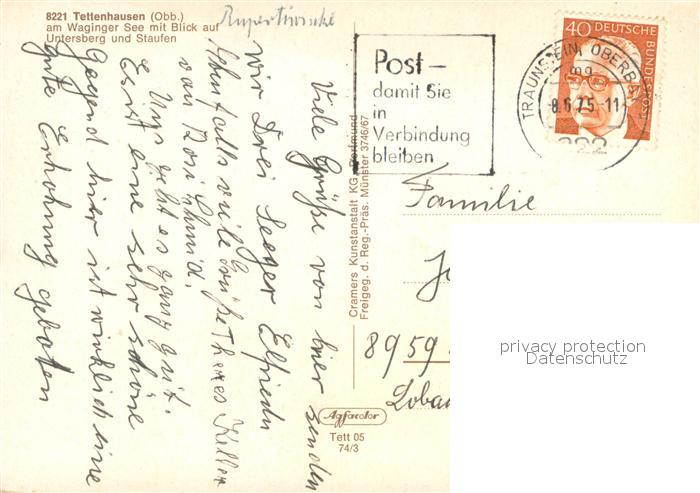 8221 Tettenhausen (Obb.)
am Waginger See mit Blick auf
Untersberg und Staufen
Rupertiwinkel
Post –
damit Sie
in
Verbindung
bleiben
TRAUNSTEIN, OBERBAY
-8.6.75-11
822
40 DEUTSCHE BUNDESPOST
Viele Grüße von hier senden
wir Drei Seeger Elfriede
Ebenfalls viele Grüße Theres Keller
von Rosi Schmid.
Uns geht es ganz gut.
Es ist eine sehr schöne
Gegend hier ist wirklich eine
gute Erholung geboten
Cramers Kunstanstalt KG, Dortmund
Freigeg. d. Reg.-Präs. Münster 3746/67
Familie
8959
Agfacolor
Tett 05
74/3
privacy protection
Datenschutz